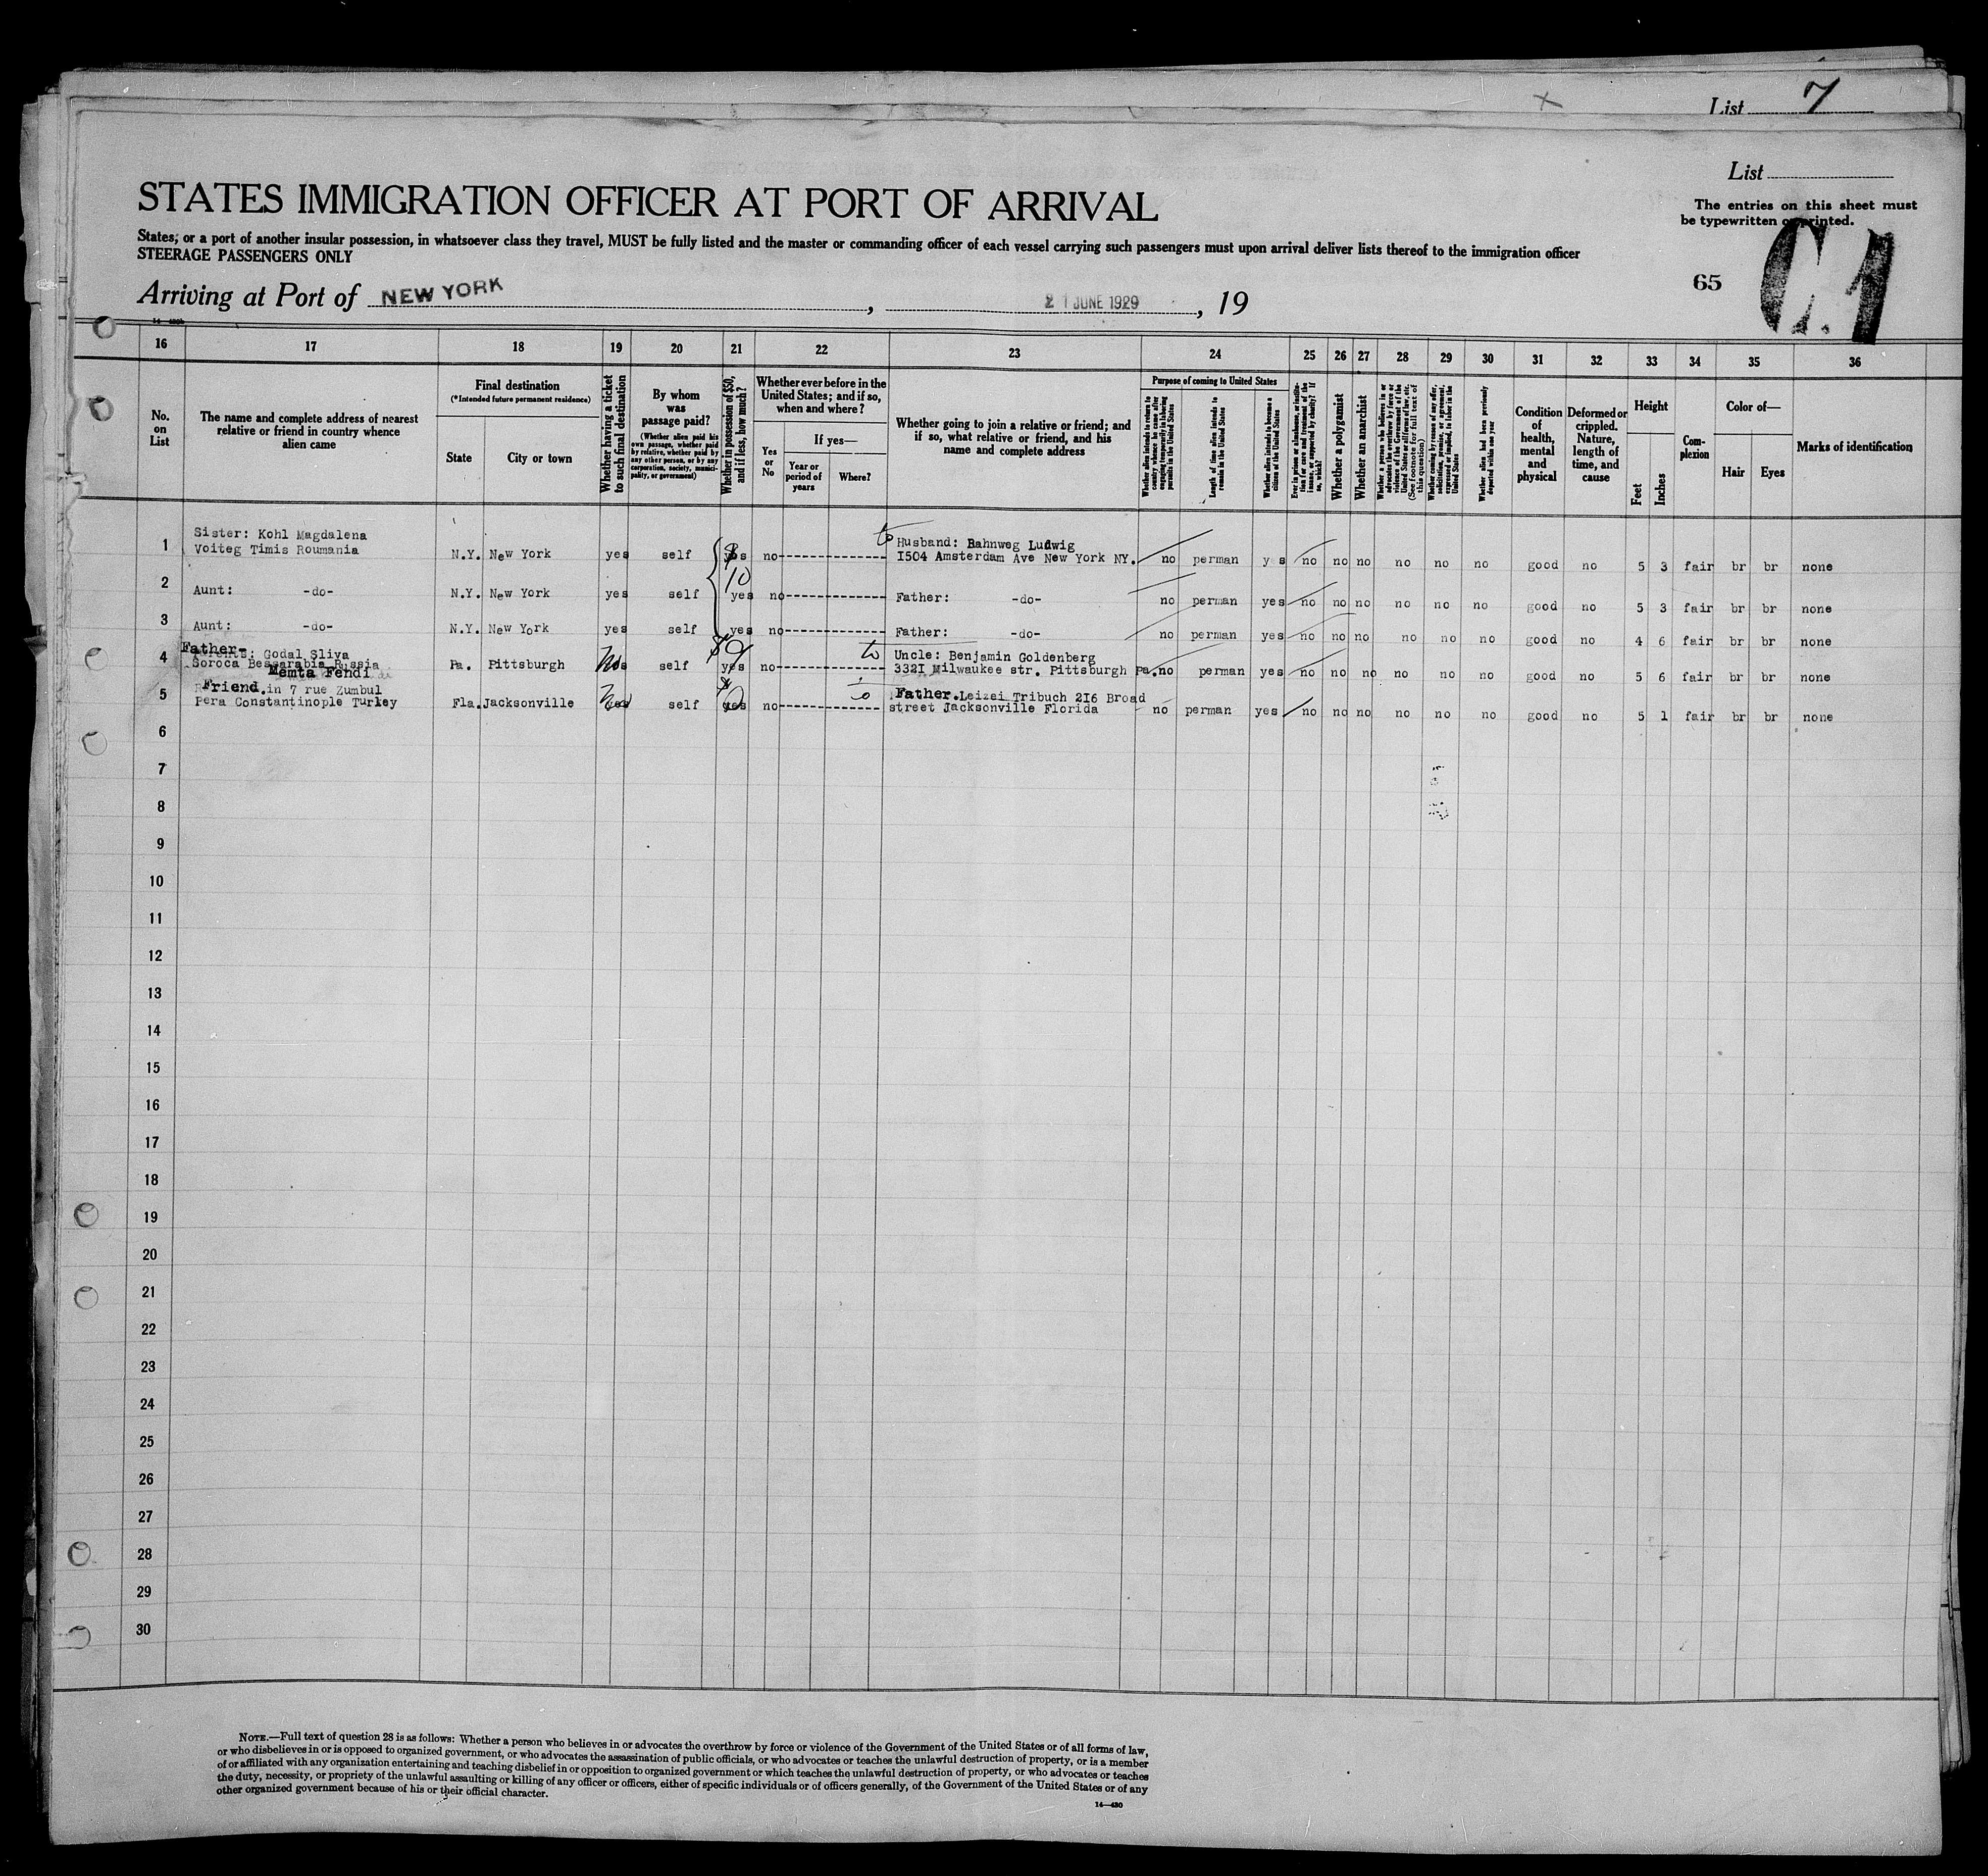 List 7
List
STATES IMMIGRATION OFFICER AT PORT OF ARRIVAL
The entries on this sheet must
be typewritten or printed.
States, or a port of another insular possession, in whatsoever class they travel, MUST be fully listed and the master or commanding officer of each vessel carrying such passengers must upon arrival deliver lists thereof to the immigration officer
STEERAGE PASSENGERS ONLY
65
Arriving at Port of NEW YORK, 21 JUNE 1929, 19
16 17 18 19 20 21 22 23 24 25 26 27 28 29 30 31 32 33 34 35 36
No.
on
List
The name and complete address of nearest
relative or friend in country whence
alien came
Final destination
(*Intended future permanent residence)
State
City or town
Whether having a ticket
to such final destination
By whom
was
passage paid?
(Whether alien paid his
own passage, whether paid
by relative, whether paid by
any other person, or by any
corporation, society, munici-
pality, or government)
Whether in possession of $50,
and if less, how much?
Whether ever before in the
United States; and if so,
when and where?
Yes
or
No
If yes—
Year or
period of
years
Where?
Whether going to join a relative or friend; and
if so, what relative or friend, and his
name and complete address
Purpose of coming to United States
Whether alien intends to return to
country whence he came after
engaging temporarily in laboring
pursuits in the United States
Length of time alien intends to
remain in the United States
Whether alien intends to become a
citizen of the United States
Ever in prison or almshouse, or institu-
tion for care and treatment of the
insane, or supported by charity? If
so, which?
Whether a polygamist
Whether an anarchist
Whether a person who believes in or
advocates the overthrow by force or
violence of the Government of the
United States or all forms of law, etc.
(See footnote for full text of
this question)
Whether coming by reason of any offer,
solicitation, promise, or agreement,
expressed or implied, to labor in the
United States
Whether alien had been previously
deported within one year
Condition
of
health,
mental
and
physical
Deformed or
crippled.
Nature,
length of
time, and
cause
Height
Feet
Inches
Com-
plexion
Color of—
Hair
Eyes
Marks of identification
Sister: Kohl Magdalena to Husband: Bahnweg Ludwig
1 Voiteg Timis Roumania N.Y. New York yes self yes $10 no I504 Amsterdam Ave New York NY. no perman y s no no no no no no good no 5 3 fair br br none
2 Aunt: -do- N.Y. New York yes self yes no Father: -do- no perman yes no no no no no no good no 5 3 fair br br none
3 Aunt: -do- N.Y. New York yes self yes no Father: -do- no perman yes no no no no no no good no 4 6 fair br br none
Father-
Parents: Godal Sliva to Uncle: Benjamin Goldenberg
4 Soroca Bessarabia Russia Pa. Pittsburgh No self yes no 332I Milwaukee str. Pittsburgh Pa. no perman yes no no no no no no good no 5 6 fair br br none
Memta Fendi
Friend. in 7 rue Zumbul to Father. Leizei Tribuch 2I6 Broad
5 Pera Constantinople Turkey Fla. Jacksonville self yes no street Jacksonville Florida no perman yes no no no no no no good no 5 1 fair br br none
6
7
8
9
10
11
12
13
14
15
16
17
18
19
20
21
22
23
24
25
26
27
28
29
30
NOTE.—Full text of question 28 is as follows: Whether a person who believes in or advocates the overthrow by force or violence of the Government of the United States or of all forms of law,
or who disbelieves in or is opposed to organized government, or who advocates the assassination of public officials, or who advocates or teaches the unlawful destruction of property, or is a member
of or affiliated with any organization entertaining and teaching disbelief in or opposition to organized government or which teaches the unlawful destruction of property, or who advocates or teaches
the duty, necessity, or propriety of the unlawful assaulting or killing of any officer or officers, either of specific individuals or of officers generally, of the Government of the United States or of any
other organized government because of his or their official character.
14—430